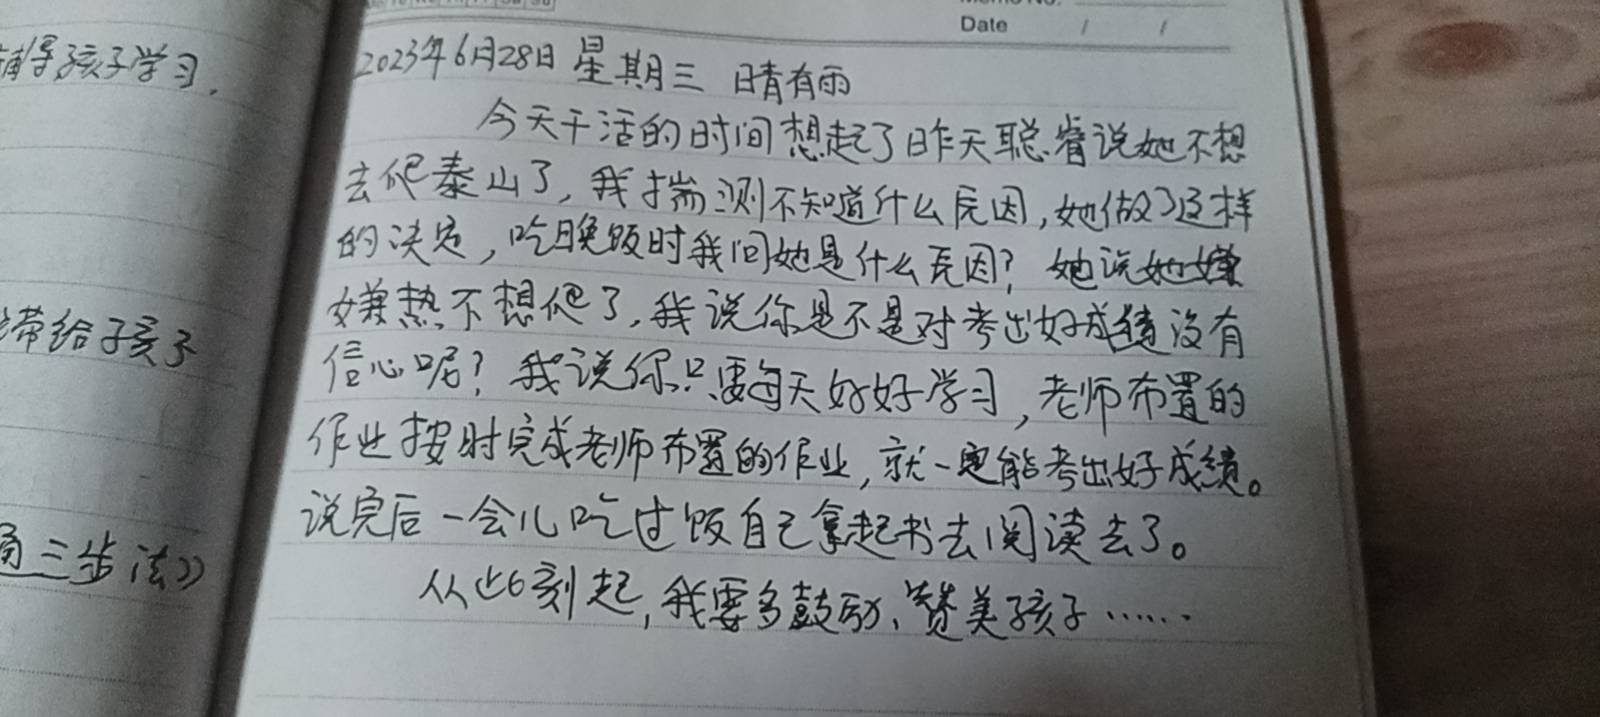 Date / /
辅导孩子学习.
2023年6月28日 星期三 晴有雨
今天干活的时间想起了昨天聪睿说她不想
去爬泰山了,我揣测不知道什么原因,她做了这样
的决定,吃晚饭时我问她是什么原因?她说她嫌
嫌热不想爬了,我说你是不是对考出好成绩没有
信心呢?我说你只要每天好好学习,老师布置的
作业按时完成老师布置的作业,就一定能考出好成绩。
说完后一会儿吃过饭自己拿起书去阅读去了。
从此刻起,我要多鼓励、赞美孩子……
带给孩子
三步法》